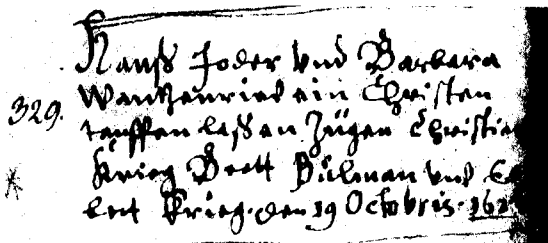 Hanß Joder vnd Barbara
329. Wantzenried ein Christen
tauffen laßen Zügen Christia
Krieg Bendt Bülman vnd
Krieg. den 19 Octobris. 162